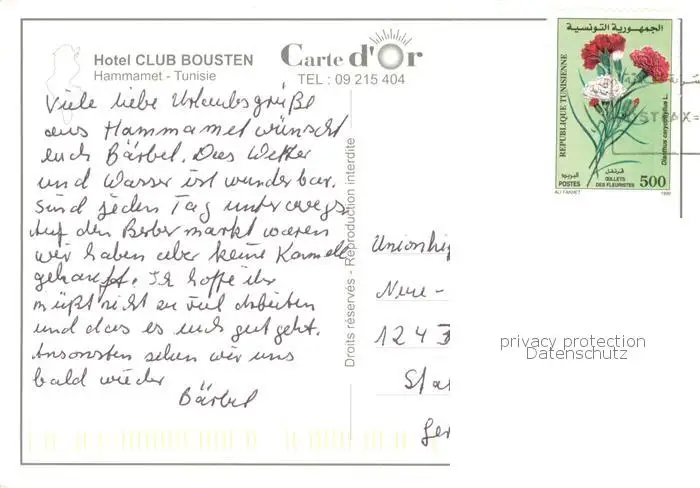 Hotel CLUB BOUSTEN
Hammamet - Tunisie
Carte d'Or
TEL : 09 215 404
Viele liebe Urlaubsgrüße
aus Hammamet wünscht
euch Bärbel. Das Wetter
und Wasser ist wunderbar.
Sind jeden Tag unterwegs.
Auf den Berbermarkt waren
wir haben aber keine Kamele
gekauft. Ich hoffe ihr
müßt nicht zu viel arbeiten
und das es euch gut geht.
Ansonsten sehen wir uns
bald wieder
Bärbel
Droits réservés - Reproduction interdite
الجمهورية التونسية
REPUBLIQUE TUNISIENNE
Dianthus caryophyllus L.
قرنفل
البريد
ŒILLETS
DES FLEURISTES
POSTES
500
ALI FAKHET
Neue-
1243
Ger
privacy protection
Datenschutz